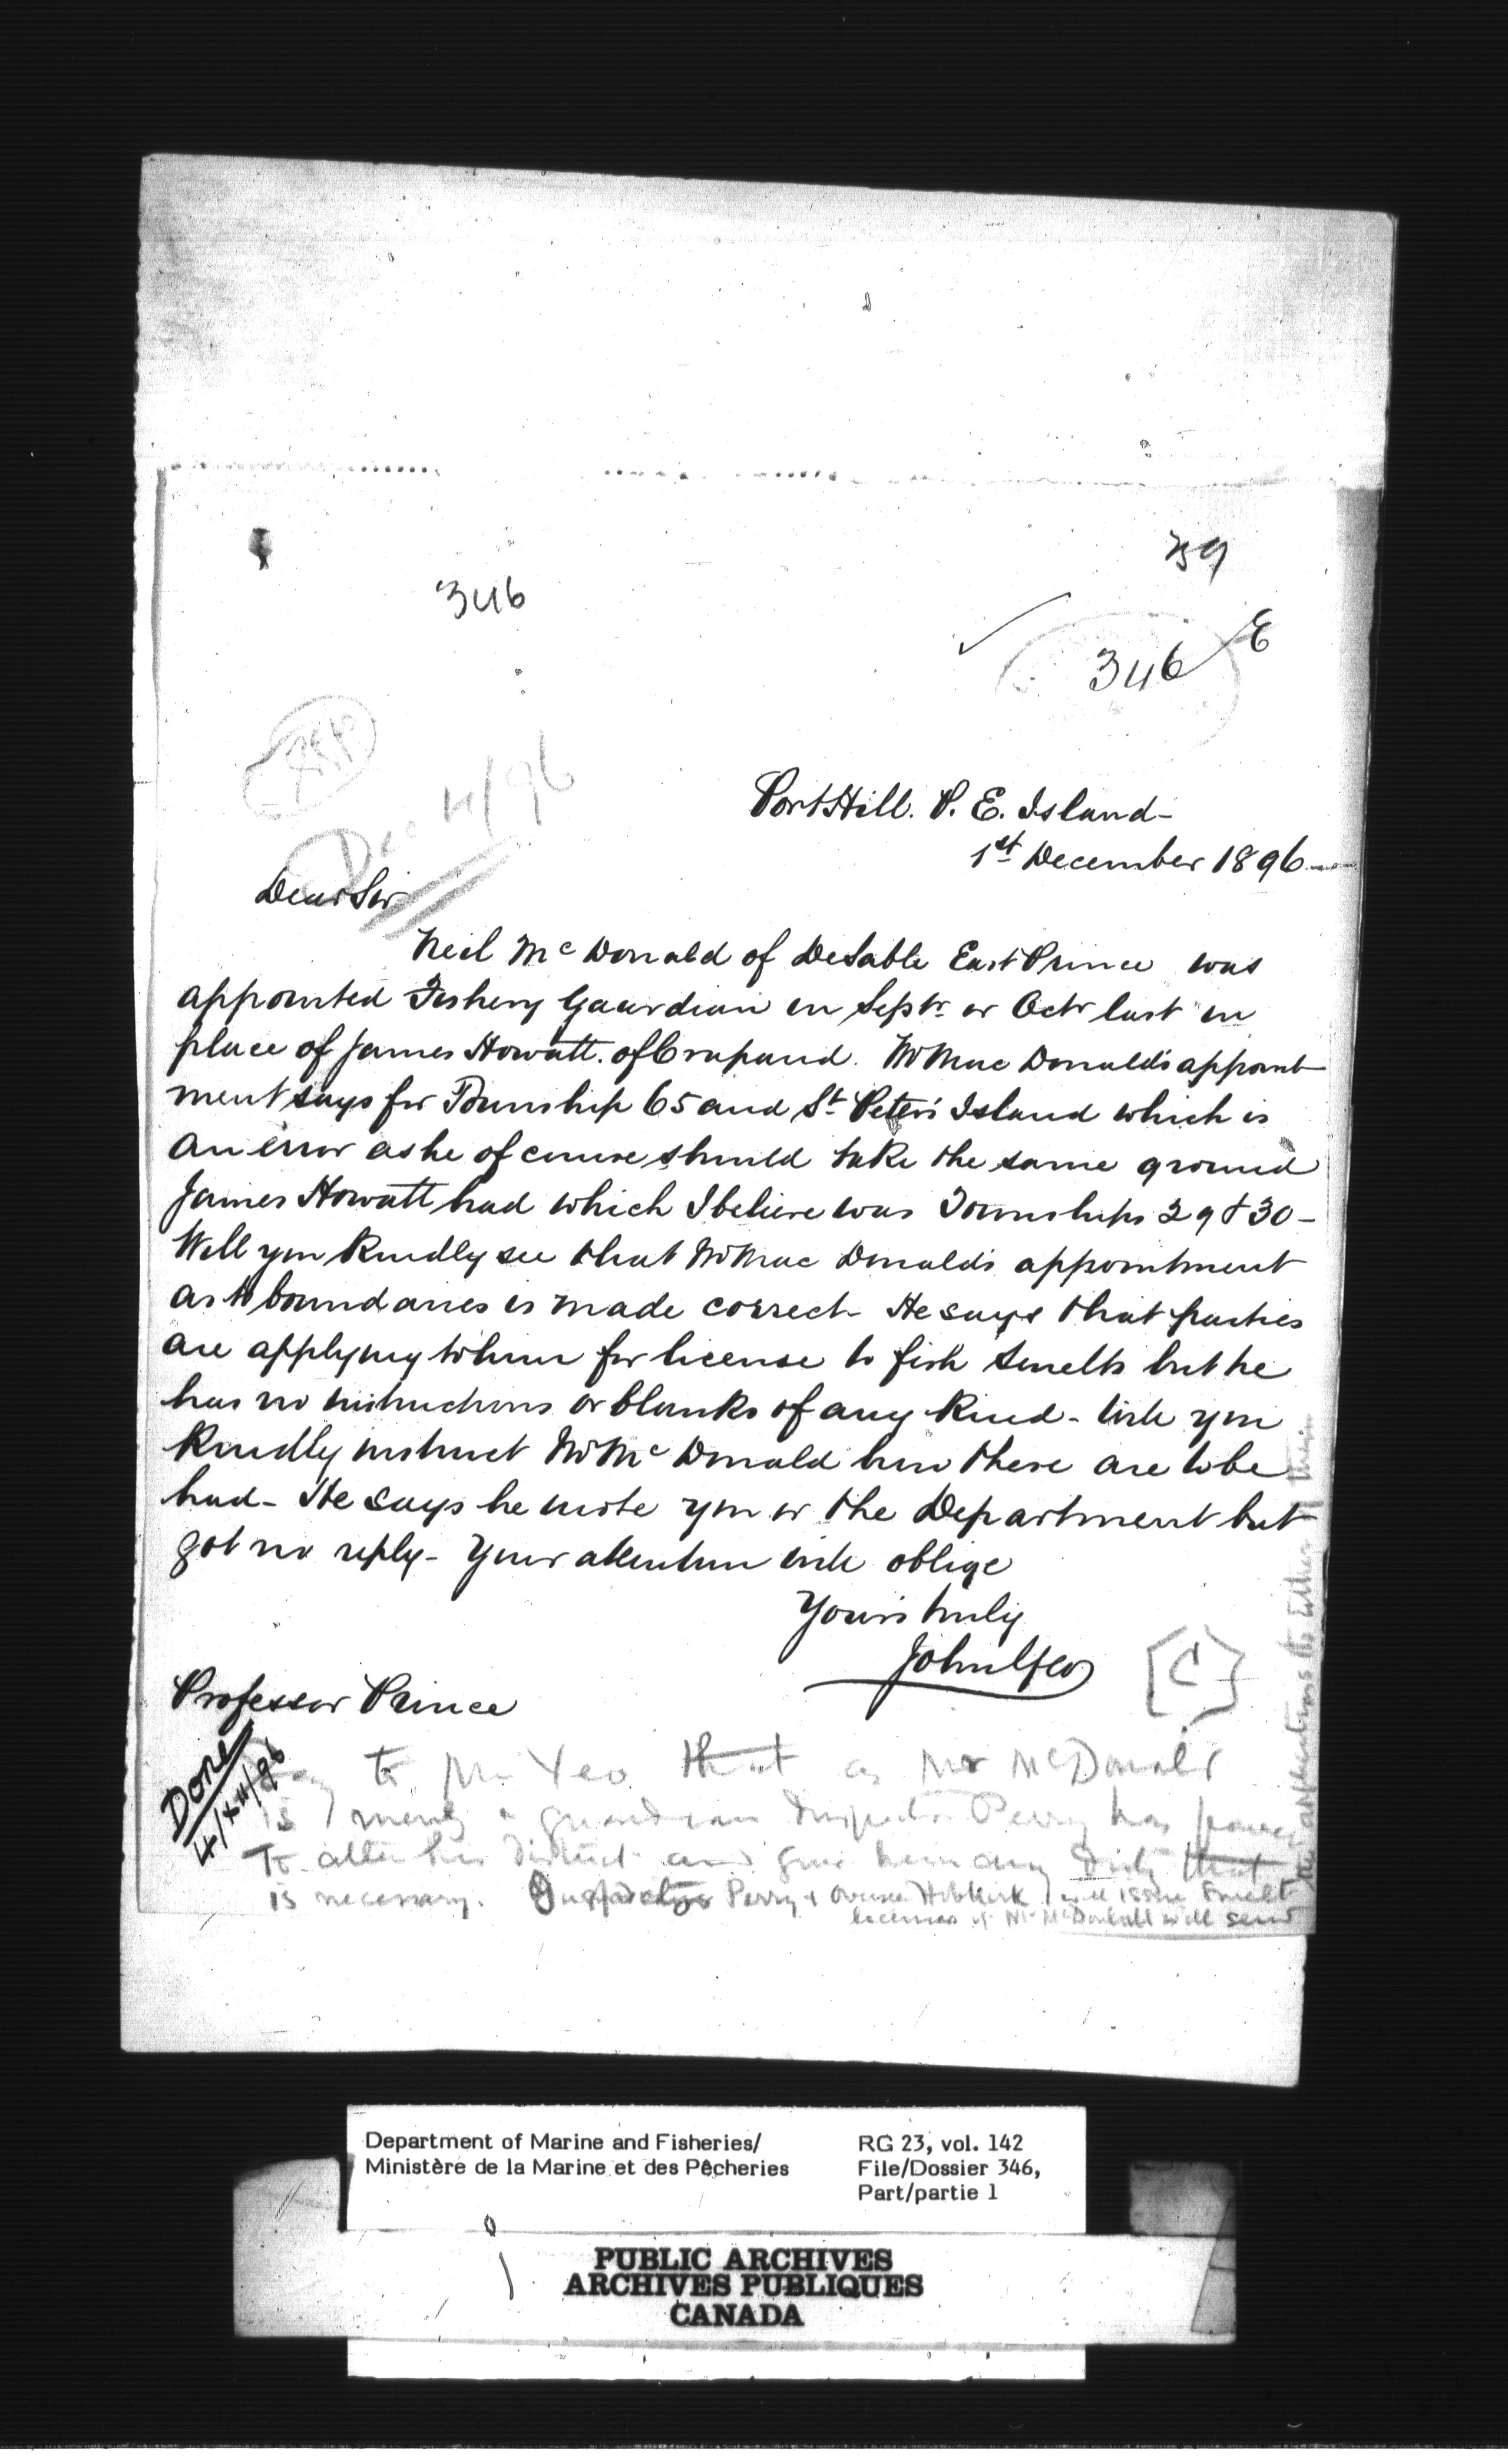 39
346
346 E
Dec 4/96
Port Hill. P. E. Island-
1st December 1896-
Dear Sir
Neil Mc Donald of DeSable East Prince was
appointed Fishery Gaurdian in Septr. or Octr last in
place of James Howatt. of Crapaud. Mr Mac Donald's appoint
ment says for Township 65 and St. Peter's Island which is
an error as he of course should take the same ground
James Howatt had which I believe was Townships 29 & 30-
Will you kindly see that Mr Mac Donald's appointment
as to boundaries is made correct- He says that parties
are applying to him for license to fish smelts but he
has no instructions or blanks of any kind- Will you
kindly instruct Mr Mc Donald how these are to be
had- He says he wrote you or the Department but
got no reply- Your attention will oblige
Yours truly
John Yeo
[C]
Professor Prince
Done
4/XII/96
Say to Mr Yeo that as Mr McDonald
is merely a guardian Inspector Perry has power
to alter his District and give him any Duty that
is necessary. Inspector Perry & Overseer Hibkirk will issue smelt
licenses if Mr McDonald will send
the applications to either of them
Department of Marine and Fisheries/
Ministère de la Marine et des Pêcheries
RG 23, vol. 142
File/Dossier 346,
Part/partie 1
PUBLIC ARCHIVES
ARCHIVES PUBLIQUES
CANADA